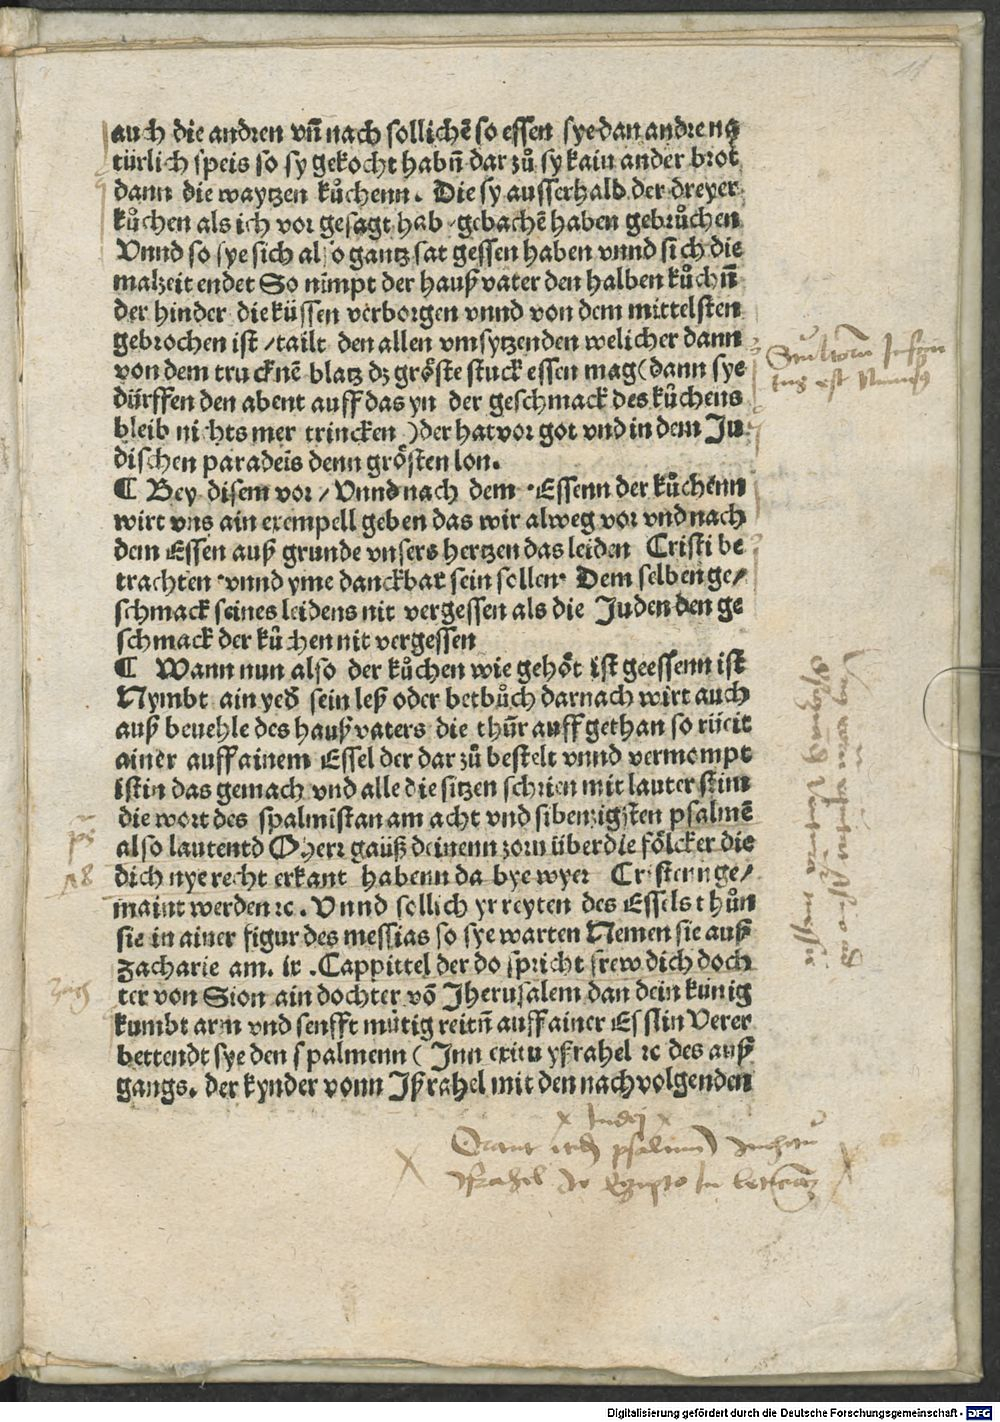 auch die andren vn̄ nach sollichē so essen sye dan andre na
türlich speis so sy gekocht habn̄ dar zů sy kain ander brot
dann die waytzen kůchenn. Die sy ausserhalb der dreyer
kůchen als ich vor gesagt hab gebachē haben gebrůchen
Vnnd so sye sich also gantz sat gessen haben vnnd sich die
malzeit endet So nimpt der hauß vater den halben kůchn̄
der hinder die küssen verborgen vnnd von dem mittelsten
gebrochen ist / tailt den allen vmsytzenden welicher dann
von dem trucknē blatz dz gröste stuck essen mag (dann sye
dürffen den abent auff das yn der geschmack des kůchens
bleib nichts mer trincken ) der hat vor got vnd in dem Ju
dischen paradeis denn grösten lon.
¶ Bey disem vor / Vnnd nach dem Essenn der kůchenn
wirt vns ain exempell geben das wir alweg vor vnd nach
dem Essen auß grunde vnsers hertzen das leiden Cristi be
trachten vnnd yme danckbar sein sollen Dem selben ge/
schmack seines leidens nit vergessen als die Juden den ge
schmack der kůchen nit vergessen
¶ Wann nun also der kůchen wie gehöt ist geessenn ist
Nymbt ain yed sein leß oder betbůch darnach wirt auch
auß beuehle des hauß vaters die thür auff gethan so rücit
ainer auff ainem Essel der dar zů bestelt vnnd vermompt
ist in das gemach vnd alle die sitzen schrien mit lauter stim
die wort des spalmistan am acht vnd sibentzigsten psalmē
also lautentd O herr gaüß deinenn zorn über die fölcker die
dich nye recht erkant habenn da bye wyer Cristenn ge/
maint werden ꝛc. Vnnd sollich yr reyten des Essels thůn
sie in ainer figur des messias so sye warten Nemen sie auß
Zacharie am. ix .Cappittel der do spricht frew dich doch
ter von Sion ain dochter võ Jherusalem dan dein künig
kumbt arm vnd senfft mütig reitn̄ auff ainer Esslin Verer
bettendt sye den spalmenn ( Jnn exitu yßrahel ꝛc des auß
gangs. der kynder vonn Jßrahel mit den nachvolgenden
ps
78
Zach
Judej
psalmum
Digitalisierung gefördert durch die Deutsche Forschungsgemeinschaft - DFG